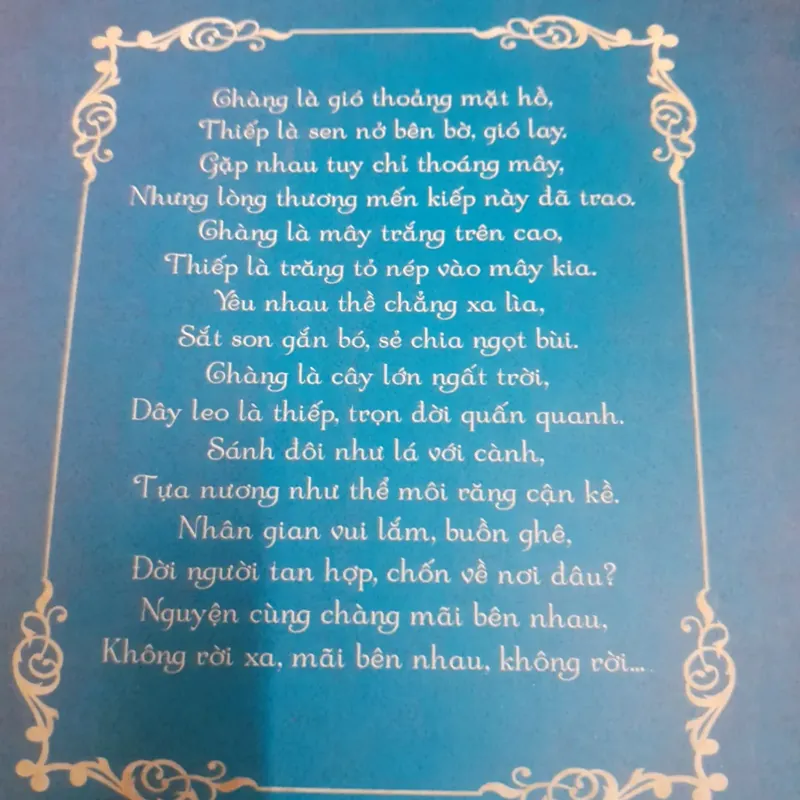 Chàng là gió thoảng mặt hồ,
Thiếp là sen nở bên bờ, gió lay.
Gặp nhau tuy chỉ thoáng mây,
Nhưng lòng thương mến kiếp này đã trao.
Chàng là mây trắng trên cao,
Thiếp là trăng tỏ nép vào mây kia.
Yêu nhau thề chẳng xa lìa,
Sắt son gắn bó, sẻ chia ngọt bùi.
Chàng là cây lớn ngất trời,
Dây leo là thiếp, trọn đời quấn quanh.
Sánh đôi như lá với cành,
Tựa nương như thể môi răng cận kề.
Nhân gian vui lắm, buồn ghê,
Đời người tan hợp, chốn về nơi đâu?
Nguyện cùng chàng mãi bên nhau,
Không rời xa, mãi bên nhau, không rời...